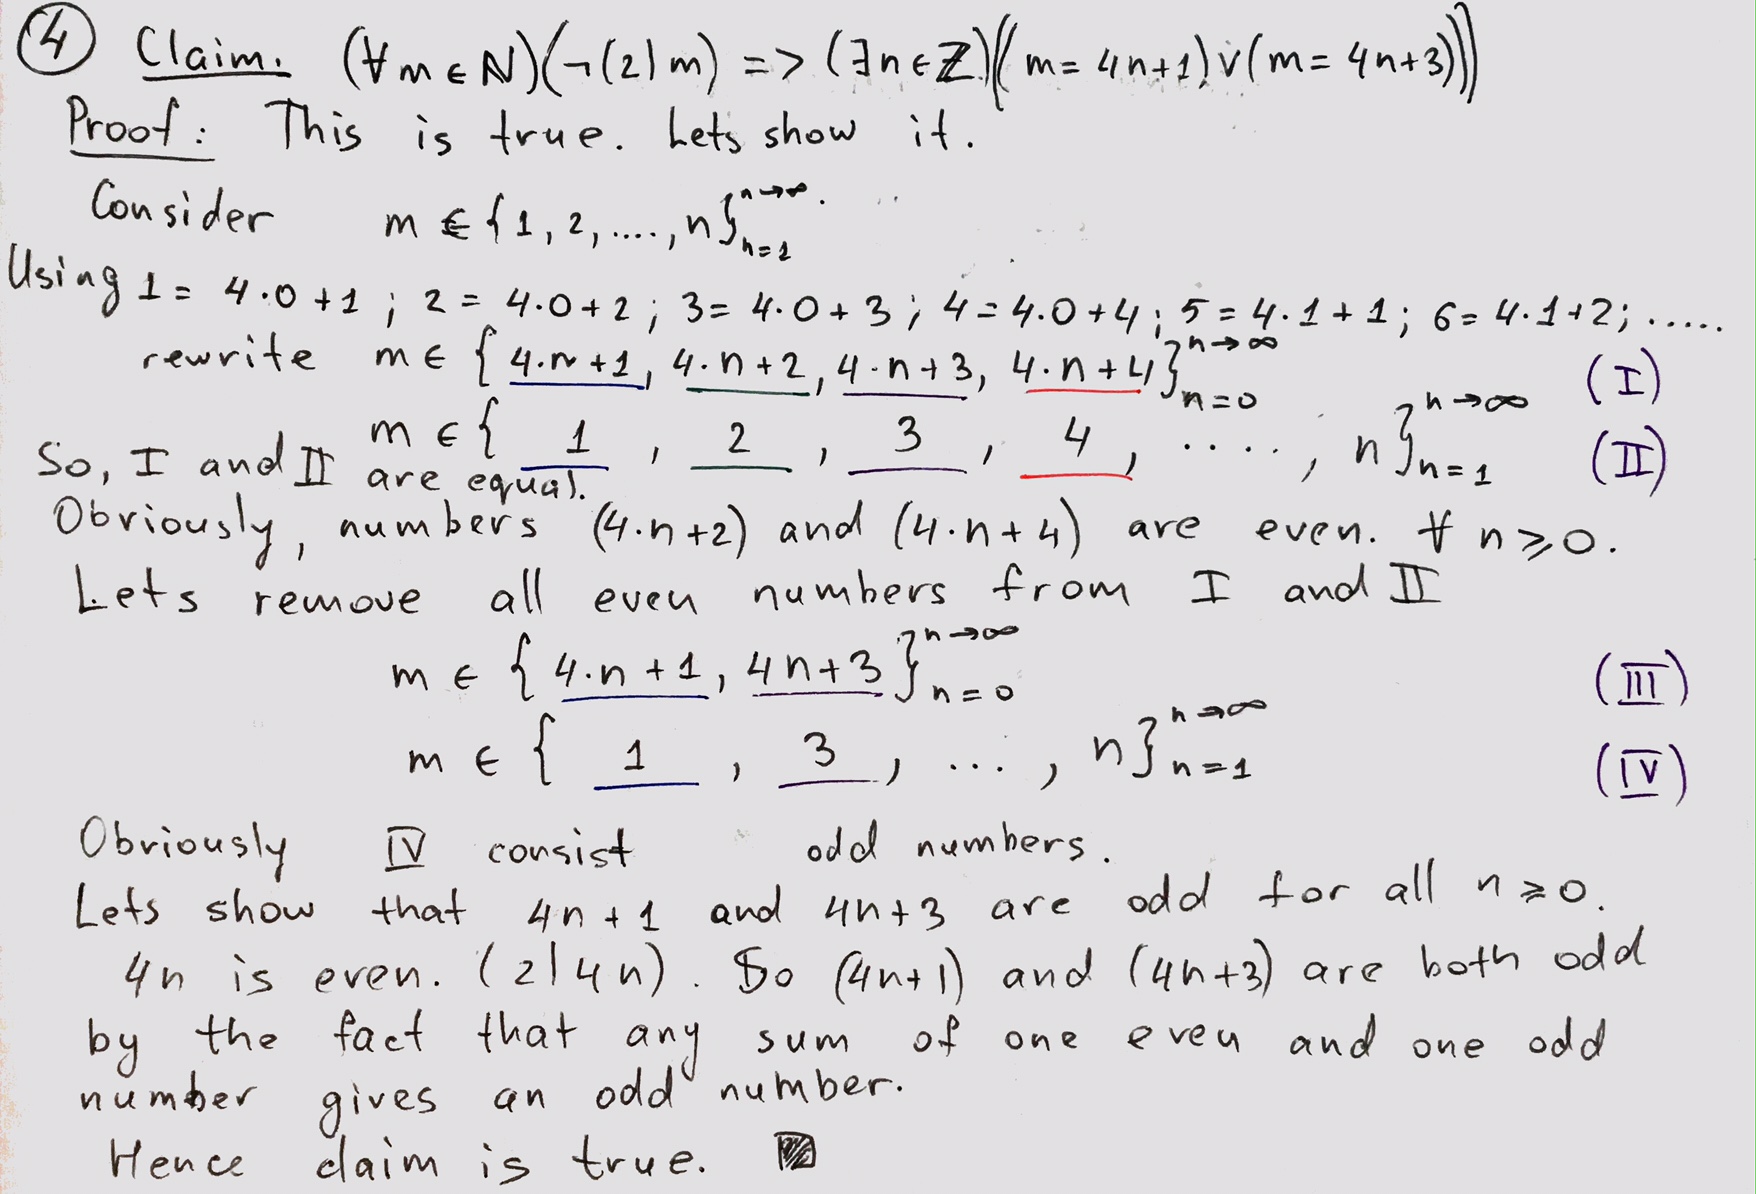 ④ Claim. (∀m∈N)(¬(2|m) => (∃n∈Z)((m=4n+1)∨(m=4n+3)))
Proof: This is true. Lets show it.
Consider m ∈ {1, 2, ...., n}ₙ₌₁ⁿ→∞.
Using 1 = 4·0+1; 2 = 4·0+2; 3 = 4·0+3; 4 = 4·0+4; 5 = 4·1+1; 6 = 4·1+2; .....
rewrite m ∈ {4·n+1, 4·n+2, 4·n+3, 4·n+4}ₙ₌₀ⁿ→∞ (I)
m ∈ { 1 , 2 , 3 , 4 , ....., n}ₙ₌₁ⁿ→∞ (II)
So, I and II are equal.
Obviously, numbers (4·n+2) and (4·n+4) are even. ∀ n ≥ 0.
Lets remove all even numbers from I and II
m ∈ {4·n+1, 4n+3}ₙ₌₀ⁿ→∞ (III)
m ∈ { 1 , 3 , ... , n}ₙ₌₁ⁿ→∞ (IV)
Obviously IV consist odd numbers.
Lets show that 4n+1 and 4n+3 are odd for all n ≥ 0.
4n is even. (2|4n). So (4n+1) and (4n+3) are both odd
by the fact that any sum of one even and one odd
number gives an odd number.
Hence claim is true.